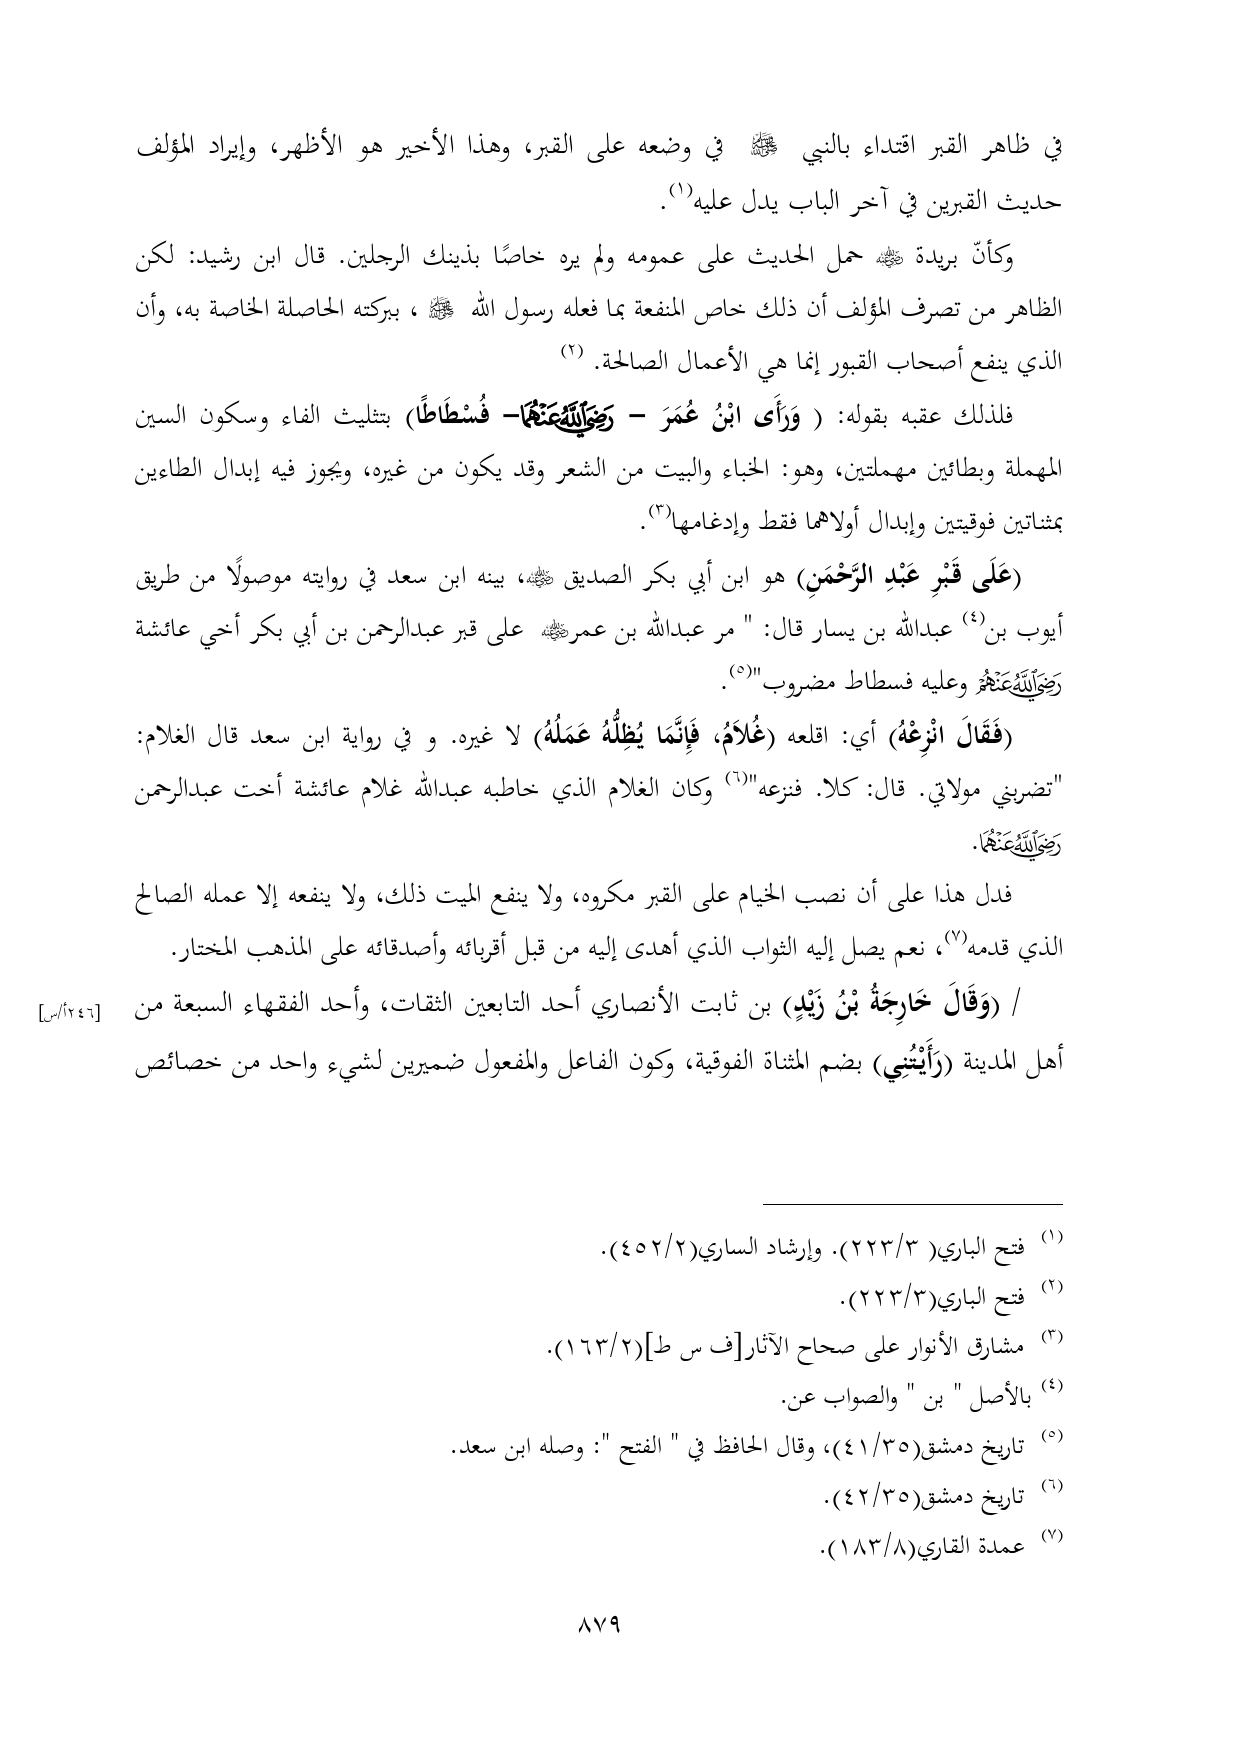 في ظاهر القبر اقتداء بالنبي ﷺ في وضعه على القبر، وهذا الأخير هو الأظهر، وإيراد المؤلف
حديث القبرين في آخر الباب يدل عليه(١).
وكأنّ بريدة رضي الله عنه حمل الحديث على عمومه ولم يره خاصًا بذينك الرجلين. قال ابن رشيد: لكن
الظاهر من تصرف المؤلف أن ذلك خاص المنفعة بما فعله رسول الله ﷺ ، ببركته الحاصلة الخاصة به، وأن
الذي ينفع أصحاب القبور إنما هي الأعمال الصالحة. (٢)
فلذلك عقبه بقوله: ( وَرَأَى ابْنُ عُمَرَ – رَضِيَ اللَّهُ عَنْهُمَا– فُسْطَاطًا) بتثليث الفاء وسكون السين
المهملة وبطائين مهملتين، وهو: الخباء والبيت من الشعر وقد يكون من غيره، ويجوز فيه إبدال الطاءين
بمثناتين فوقيتين وإبدال أولاهما فقط وإدغامها(٣).
(عَلَى قَبْرِ عَبْدِ الرَّحْمَنِ) هو ابن أبي بكر الصديق رضي الله عنه، بينه ابن سعد في روايته موصولًا من طريق
أيوب بن(٤) عبدالله بن يسار قال: " مر عبدالله بن عمر رضي الله عنه على قبر عبدالرحمن بن أبي بكر أخي عائشة
رَضِيَ اللَّهُ عَنْهُمْ وعليه فسطاط مضروب"(٥).
(فَقَالَ انْزِعْهُ) أي: اقلعه (غُلاَمُ، فَإِنَّمَا يُظِلُّهُ عَمَلُهُ) لا غيره. و في رواية ابن سعد قال الغلام:
"تضربني مولاتي. قال: كلا. فنزعه"(٦) وكان الغلام الذي خاطبه عبدالله غلام عائشة أخت عبدالرحمن
رَضِيَ اللَّهُ عَنْهُمَا.
فدل هذا على أن نصب الخيام على القبر مكروه، ولا ينفع الميت ذلك، ولا ينفعه إلا عمله الصالح
الذي قدمه(٧)، نعم يصل إليه الثواب الذي أهدى إليه من قبل أقربائه وأصدقائه على المذهب المختار.
/ (وَقَالَ خَارِجَةُ بْنُ زَيْدٍ) بن ثابت الأنصاري أحد التابعين الثقات، وأحد الفقهاء السبعة من
[٢٤٦أ/س]
أهل المدينة (رَأَيْتُنِي) بضم المثناة الفوقية، وكون الفاعل والمفعول ضميرين لشيء واحد من خصائص
(١) فتح الباري( ٢٢٣/٣). وإرشاد الساري(٤٥٢/٢).
(٢) فتح الباري(٢٢٣/٣).
(٣) مشارق الأنوار على صحاح الآثار[ف س ط](١٦٣/٢).
(٤) بالأصل " بن " والصواب عن.
(٥) تاريخ دمشق(٤١/٣٥)، وقال الحافظ في " الفتح ": وصله ابن سعد.
(٦) تاريخ دمشق(٤٢/٣٥).
(٧) عمدة القاري(١٨٣/٨).
٨٧٩